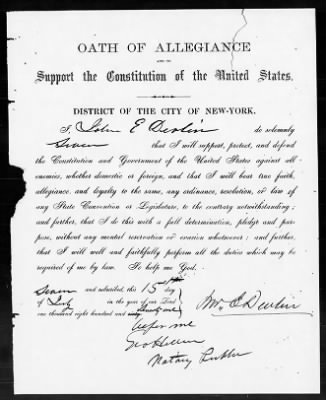 OATH OF ALLEGIANCE
AND TO
Support the Constitution of the United States.
DISTRICT OF THE CITY OF NEW-YORK.
I, John E Devlin do solemnly
Swear that I will support, protect, and defend
the Constitution and Government of the United States against all
enemies, whether domestic or foreign, and that I will bear true faith,
allegiance, and loyalty to the same, any ordinance, resolution, or law of
any State Convention or Legislature, to the contrary notwithstanding;
and further, that I do this with a full determination, pledge and pur-
pose, without any mental reservation or evasion whatsoever: and further,
that I will well and faithfully perform all the duties which may be
required of me by law. So help me God.
Sworn and subscribed, this 15 day
of July in the year of our Lord
one thousand eight hundred and sixty
Devlin
before me
Notary Public